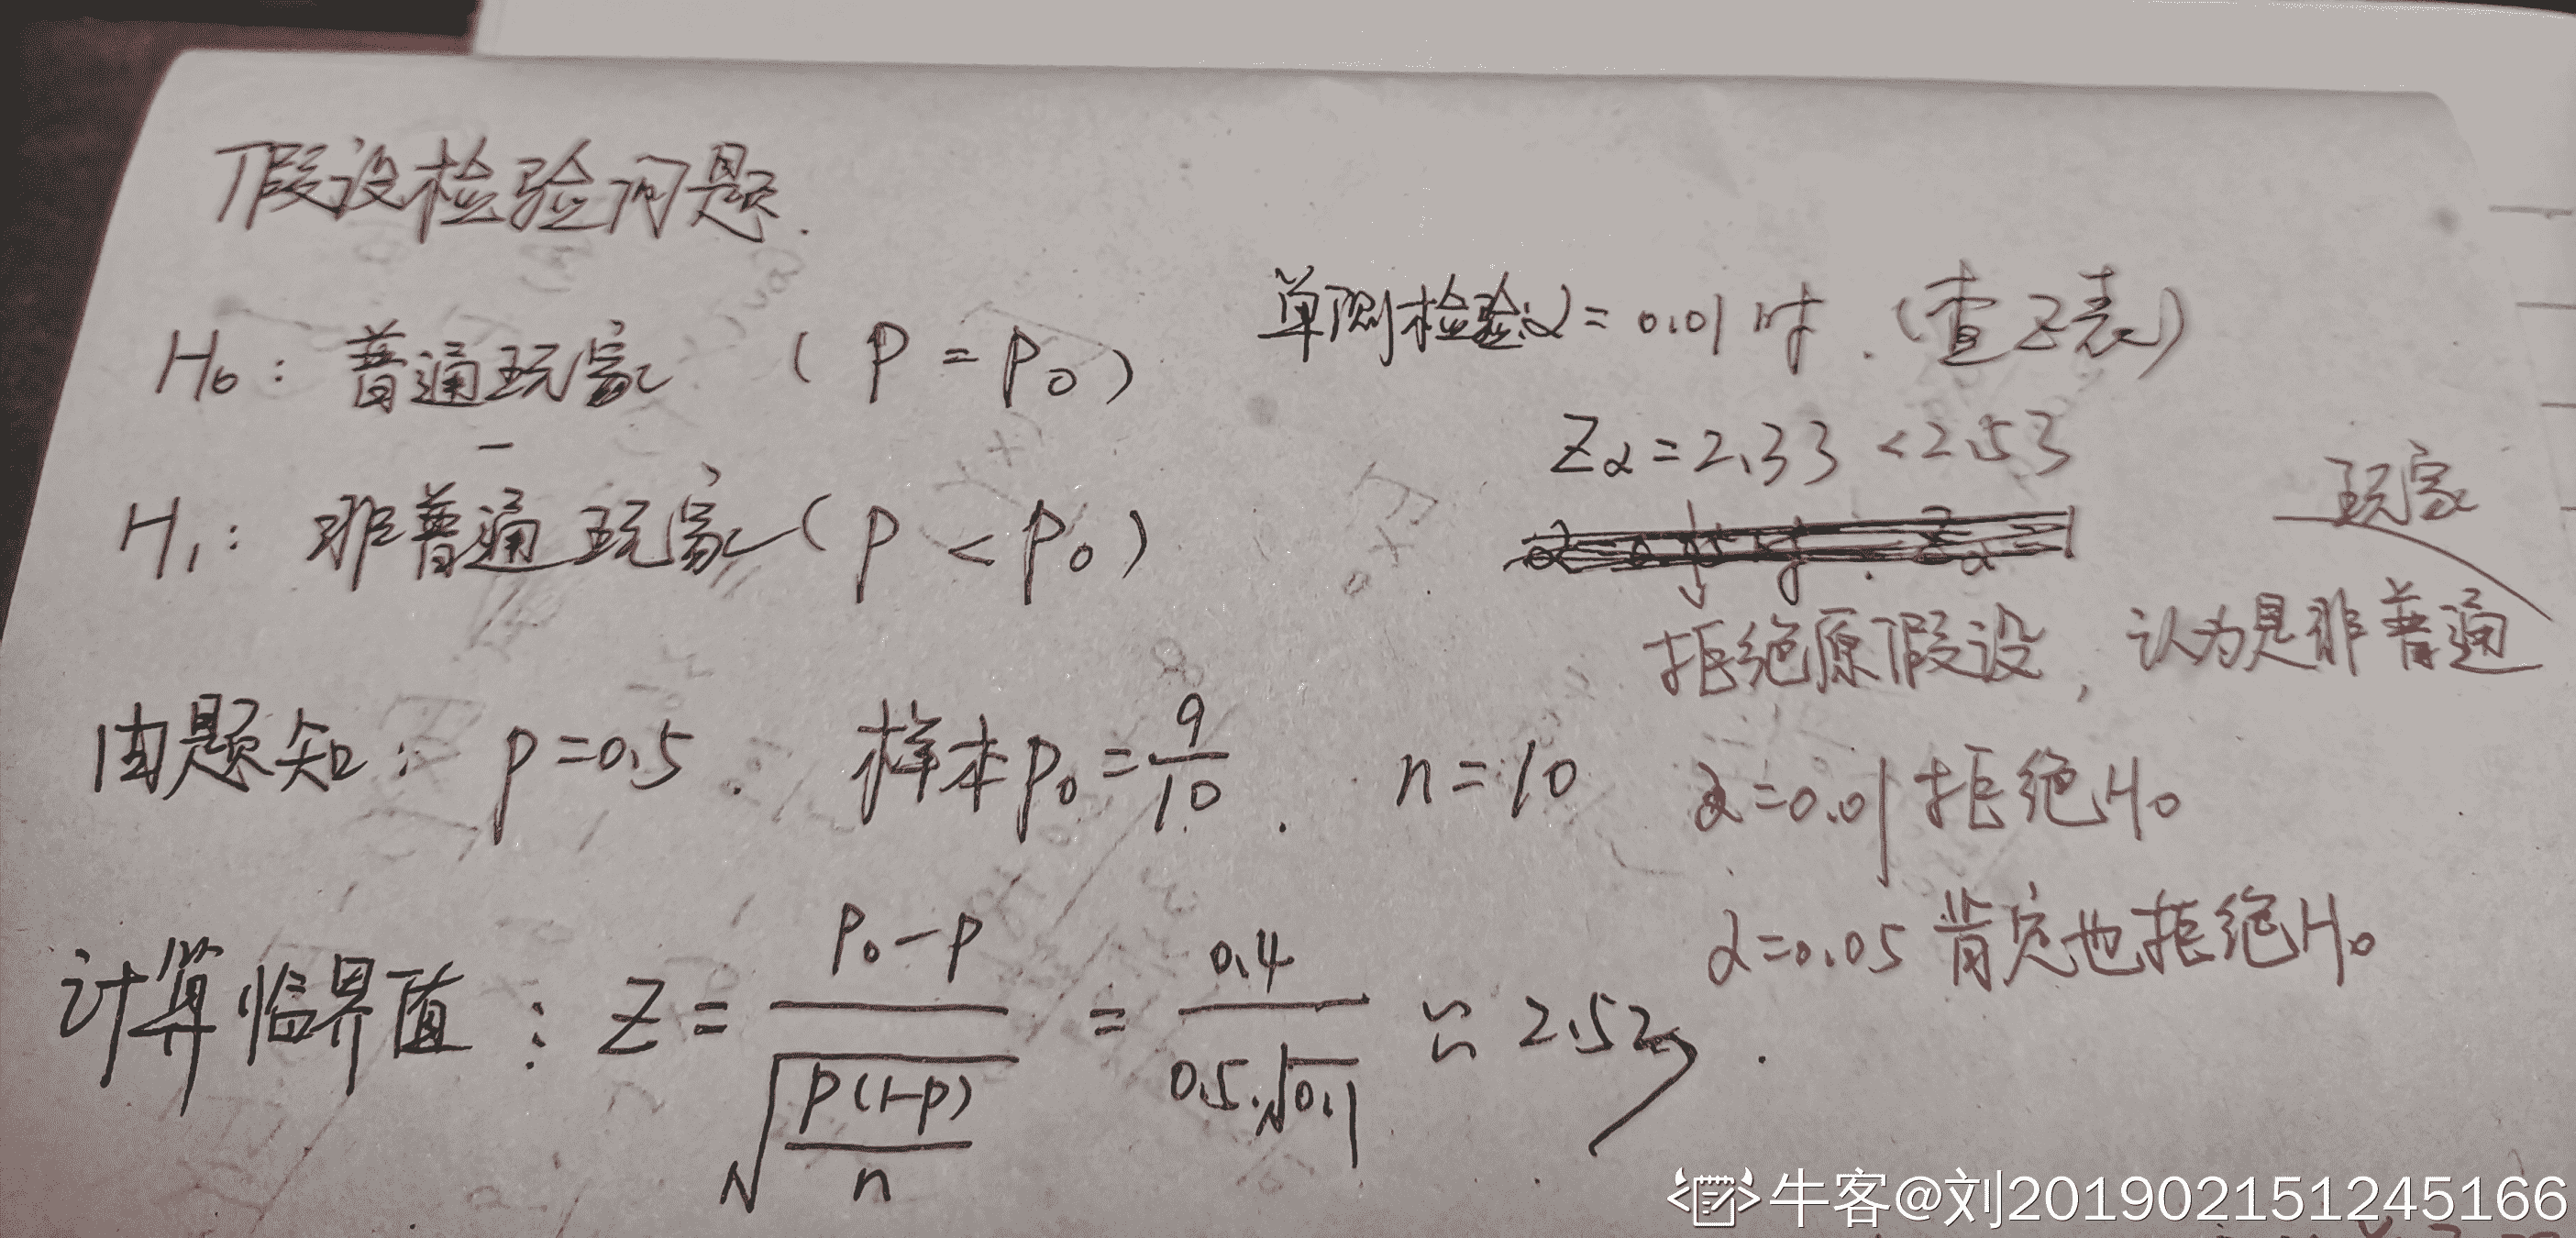 假设检验问题.
H₀: 普通玩家 (P = P₀)
H₁: 非普通玩家 (P < P₀)
由题知: P=0.5. 样本P₀ = 9/10. n=10
计算临界值: Z = (P₀-P)/√(P(1-P)/n) = 0.4/(0.5·√0.1) ≈ 2.53.
单侧检验α=0.01时. (查Z表)
Zα=2.33 <2.53
拒绝原假设, 认为是非普通
玩家
α=0.01拒绝H₀
α=0.05肯定也拒绝H₀
牛客@刘201902151245166